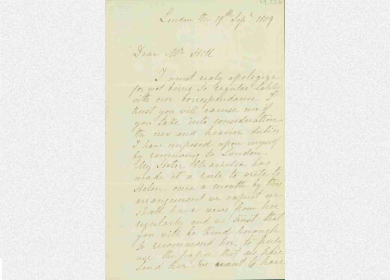 London the 18th Sept 1859
Dear Mr Hill
I must really apologize
for not being so regular lately
with our correspondence I
trust you will excuse me if
you take into consideration
the new and heavier duties
I have imposed upon myself
by removing to London.
My Sister has
made it a rule to write to
Helen once a month by this
arrangement we expect we
shall have news from her
regularly and we trust that
you will be kind enough
to recommend her to
the paper that we
send her. We want to have